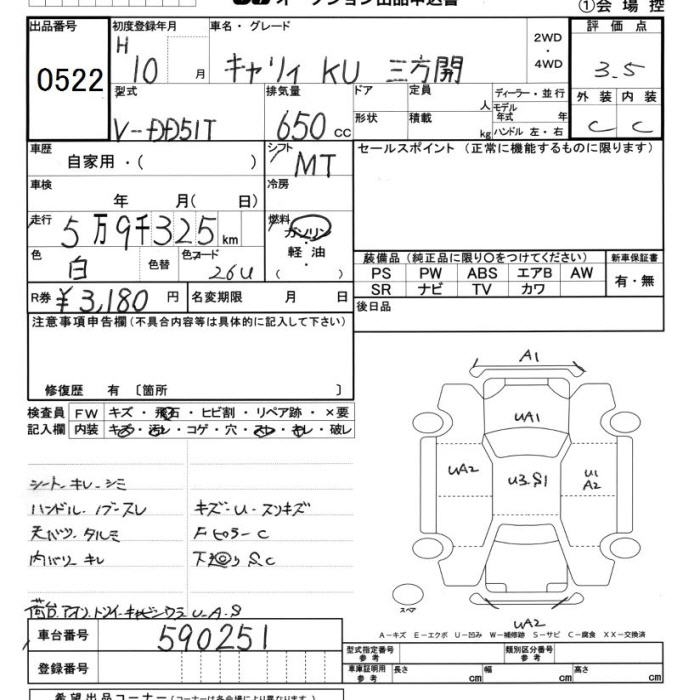 オークション出品申込書
①会場控
出品番号 初度登録年月 車名・グレード 評価点
0522 H 10 月 キャリィ KU 三方開 2WD・4WD 3.5
型式 排気量 ドア 定員 人 ディーラー・並行 外装 内装
V-DD51T 650 cc 形状 積載 kg モデル年式 年 C C
ハンドル 左・右
車歴 シフト セールスポイント(正常に機能するものに限ります)
自家用・( ) MT
車検 冷房
年 月( 日)
走行 燃料
5万9千325 km ガソリン
色 色替 色コード 軽油 装備品(純正品に限り〇をつけてください) 新車保証書
白 26U ( ) PS PW ABS エアB AW 有・無
SR ナビ TV カワ
R券 ¥3,180 円 名変期限 月 日 後日品
注意事項申告欄(不具合内容等は具体的に記入して下さい)
修復歴 有 〔箇所 〕
検査員 FW キズ・飛石・ヒビ割・リペア跡・×要
記入欄 内装 キズ・汚レ・コゲ・穴・スレ・キレ・破レ
A1
UA1
UA2 U3.S1 U1 A2
シート・キレ・シミ
ハンドル・スレ キズ・U・スリキズ
天バリ・タルミ Fピラー・C
内バリ キレ 下廻り S.C
荷台 U・A・S
スペア
UA2
A-キズ E-エクボ U-凹み W-補修跡 S-サビ C-腐食 XX-交換済
車台番号 590251 型式指定番号 参考 類別区分番号 参考
登録番号 車庫証明用 参考 長さ cm 幅 cm 高さ cm
希望出品コーナー(コーナーは各会場により異なります)